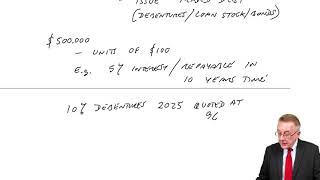 ISSUE TRADED DEBT
(DEBENTURES/LOAN STOCK/BONDS)
$500,000
– UNITS OF $100
E.g. 5% INTEREST / REPAYABLE IN
10 YEARS TIME
10% DEBENTURES 2025 QUOTED AT
96